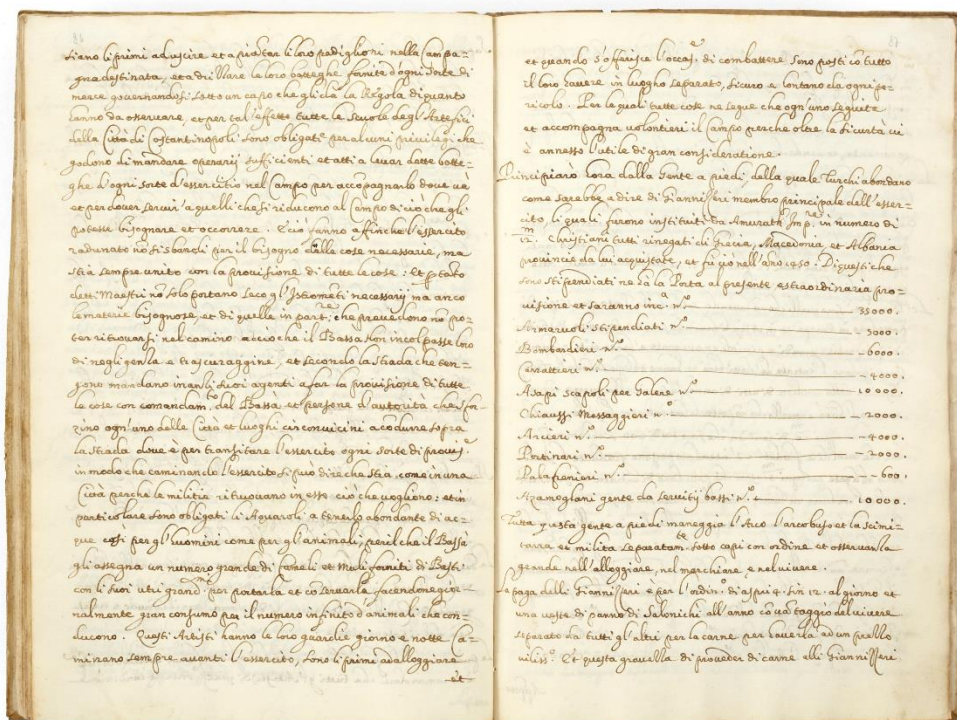 siano li primi ad uscire et a piantar li loro padiglioni nella Campa=
gna destinata, et a drizzare le loro botteghe fornite d'ogni sorte di
merce governandosi sotto un capo che gli dà la Regola di quanto
hanno da osservare, et per tal'effetto tutte le scuole degl'Artefici
della Città di Costantinopoli sono obligati per alcuni privilegi che
godono di mandare operarij sufficienti et atti a levar dette botte=
ghe d'ogni sorte d'essercitio nel Campo per accõpagnarlo dove và
et per dover servir' a quelli che si riducono al Campo di ciò che gli
potesse bisognare et occorrere. E ciò fanno affinche l'essercito
radunato nõ si sbandi per il bisogno delle cose necessarie, ma
stia sempre unito con la provisione di tutte le cose: Et ptanto
detti Maestri nõ solo portano seco gl'Istromẽti necessarij ma anco
le materie bisognose, et di quelle in part.re che prevedono nõ po=
ter ritrovarsi nel camino acciò che il Bassà non incolpasse loro
di negligenza e trascuraggine, et secondo la strada che ten=
gono mandano inanzi suoi agenti a far la provisione di tutte
le cose con comandam.to del Bassà et persone d'autorità che sfor=
zino ogn'uno delle Città et luoghi circonvicini a condurre sopra
la strada dove è per transitare l'essercito ogni sorte di provis.e
in modo che caminando l'essercito si può dire che stia come in una
Città perche le militie ritrovano in esse ciò che vogliono: et in
particolare sono obligati li Aquaroli a tenerlo abondante di ac=
que cosi per gl'huomini come per gl'animali, per il che il Bassà
gli assegna un numero grande di Cameli et Muli forniti di Basti
con li suoi utri grand.mi per portarla et cõservarla facendone gñe=
ralmente gran consumo per il numero infinito d'animali che con=
ducono. Questi Artisti hanno le loro guardie giorno e notte Ca=
minano sempre avanti l'essercito, sono li primi ad alloggiare
et
et quando s'offerisce l'occas.e di combattere sono posti cõ tutto
il loro havere in luogho separato, sicuro e lontano da ogni pe=
ricolo. Per le quali tutte cose ne segue che ogn'uno seguita
et accompagna volontieri il Campo perche oltre la sicurtà vi
è annesso l'utile di gran consideratione.
Principiarò hora dalla Gente a piedi, dalla quale Turchi abordano
come sarebbe a dire di Giannizzeri membro principale dell'esser=
cito, li quali furono instituiti da Amurath Imp.re in numero di
12.m Christiani tutti rinegati di Grecia, Macedonia et Albania
provincie da lui acquistate, et fu ciò nell'anno 1450. Di questi che
sono stipendiati ne dà la Porta al presente estraordinaria pro=
visione et saranno inc.a n.o 35000.
Armaruoli stipendiati n.o 5000.
Bombardieri n.o 6000.
Carattieri n.o 4000.
Asapi scapoli per Galere n.o 10000.
Chiaussi Messaggieri n.o 2000.
Arcieri n.o 4000.
Portinari n.o 2000.
Palafrenieri n.o 600.
Azamoglani gente da servitij bassi n.o 10000.
Tutta questa gente a piedi maneggia l'Arco l'arcobuso et la scimi=
tarra et milita separatam.te sotto capi con ordine et osservanza
grande nell'alleggiare, nel marchiare e nel vivere.
La paga delli Giannizzeri è per l'ordin.o di aspri 4. sin 12. al giorno et
una veste di panno di Salonichi all'anno cõ vantaggio del vivere
separato da tutti gl'altri per la carne per haverla ad un prezzo
viliss.o Et questa gravezza di proveder di carne alli Giannizzeri